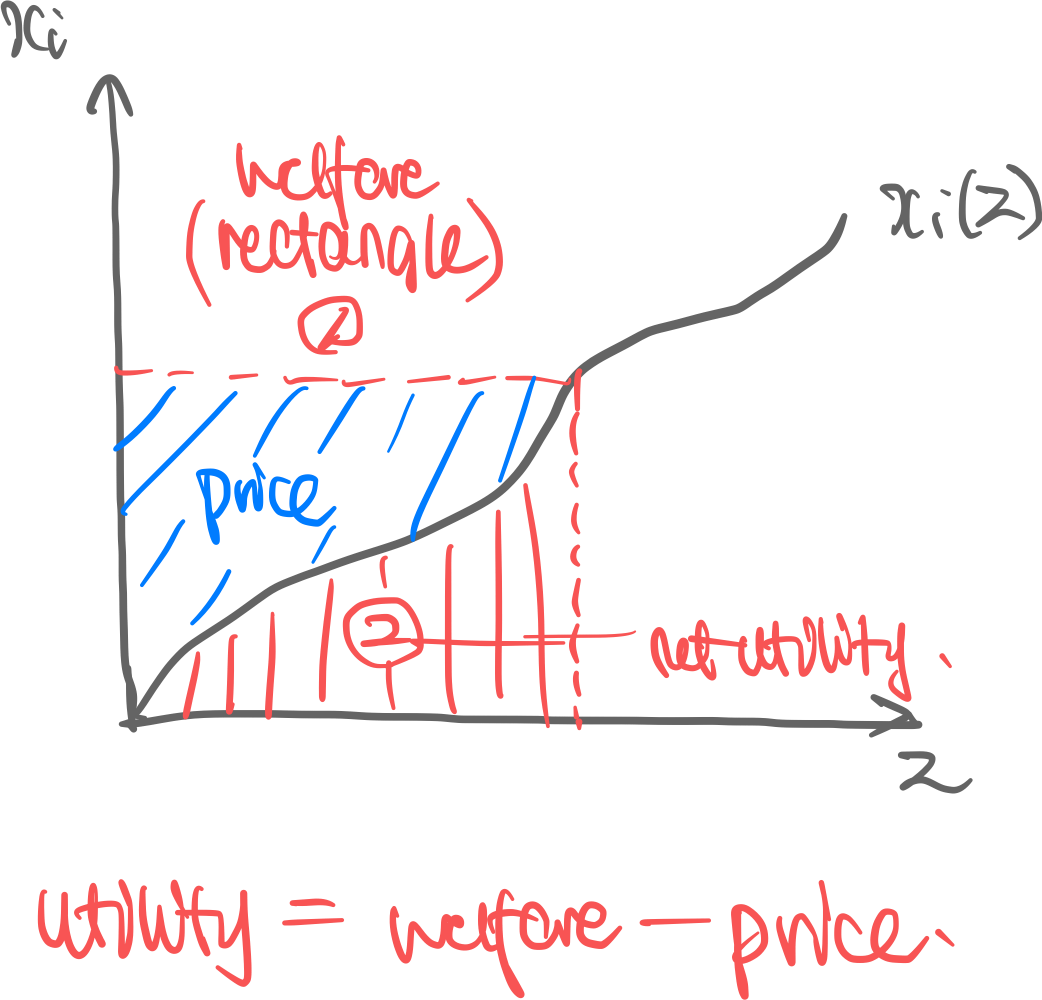 xi
welfare
(rectangle)
①
xi(z)
price
②
net utility.
z
utility = welfare - price.